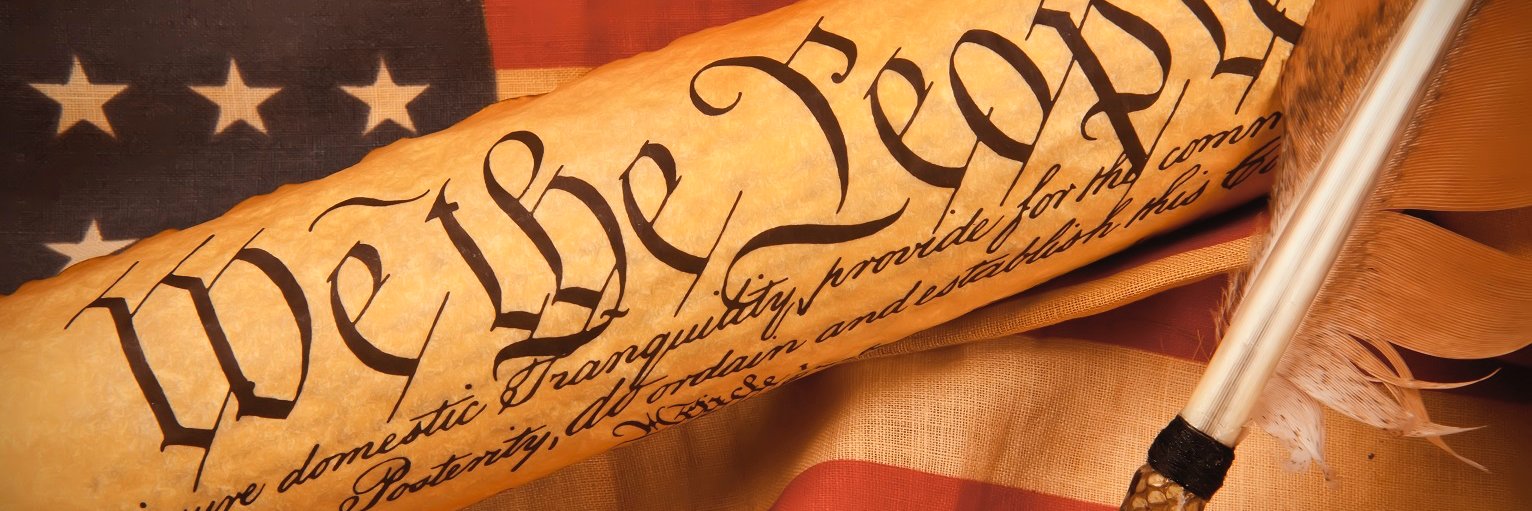 We the People
domestic Tranquility, provide for the
Posterity, do ordain and establish this